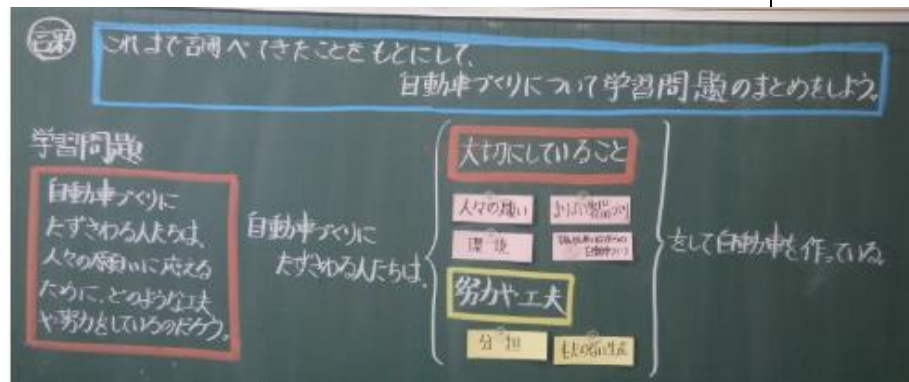 課
これまで調べてきたことをもとにして、
自動車づくりについて学習問題のまとめをしよう。
学習問題
自動車づくりに
たずさわる人たちは、
人々の願いに応える
ために、どのような工夫
や努力をしているのだろう。
自動車づくりに
たずさわる人たちは、
大切にしていること
人々の願い
よりよい製品づくり
環境
自動車づくり
努力や工夫
分担
むだのない生産
をして自動車を作っている。